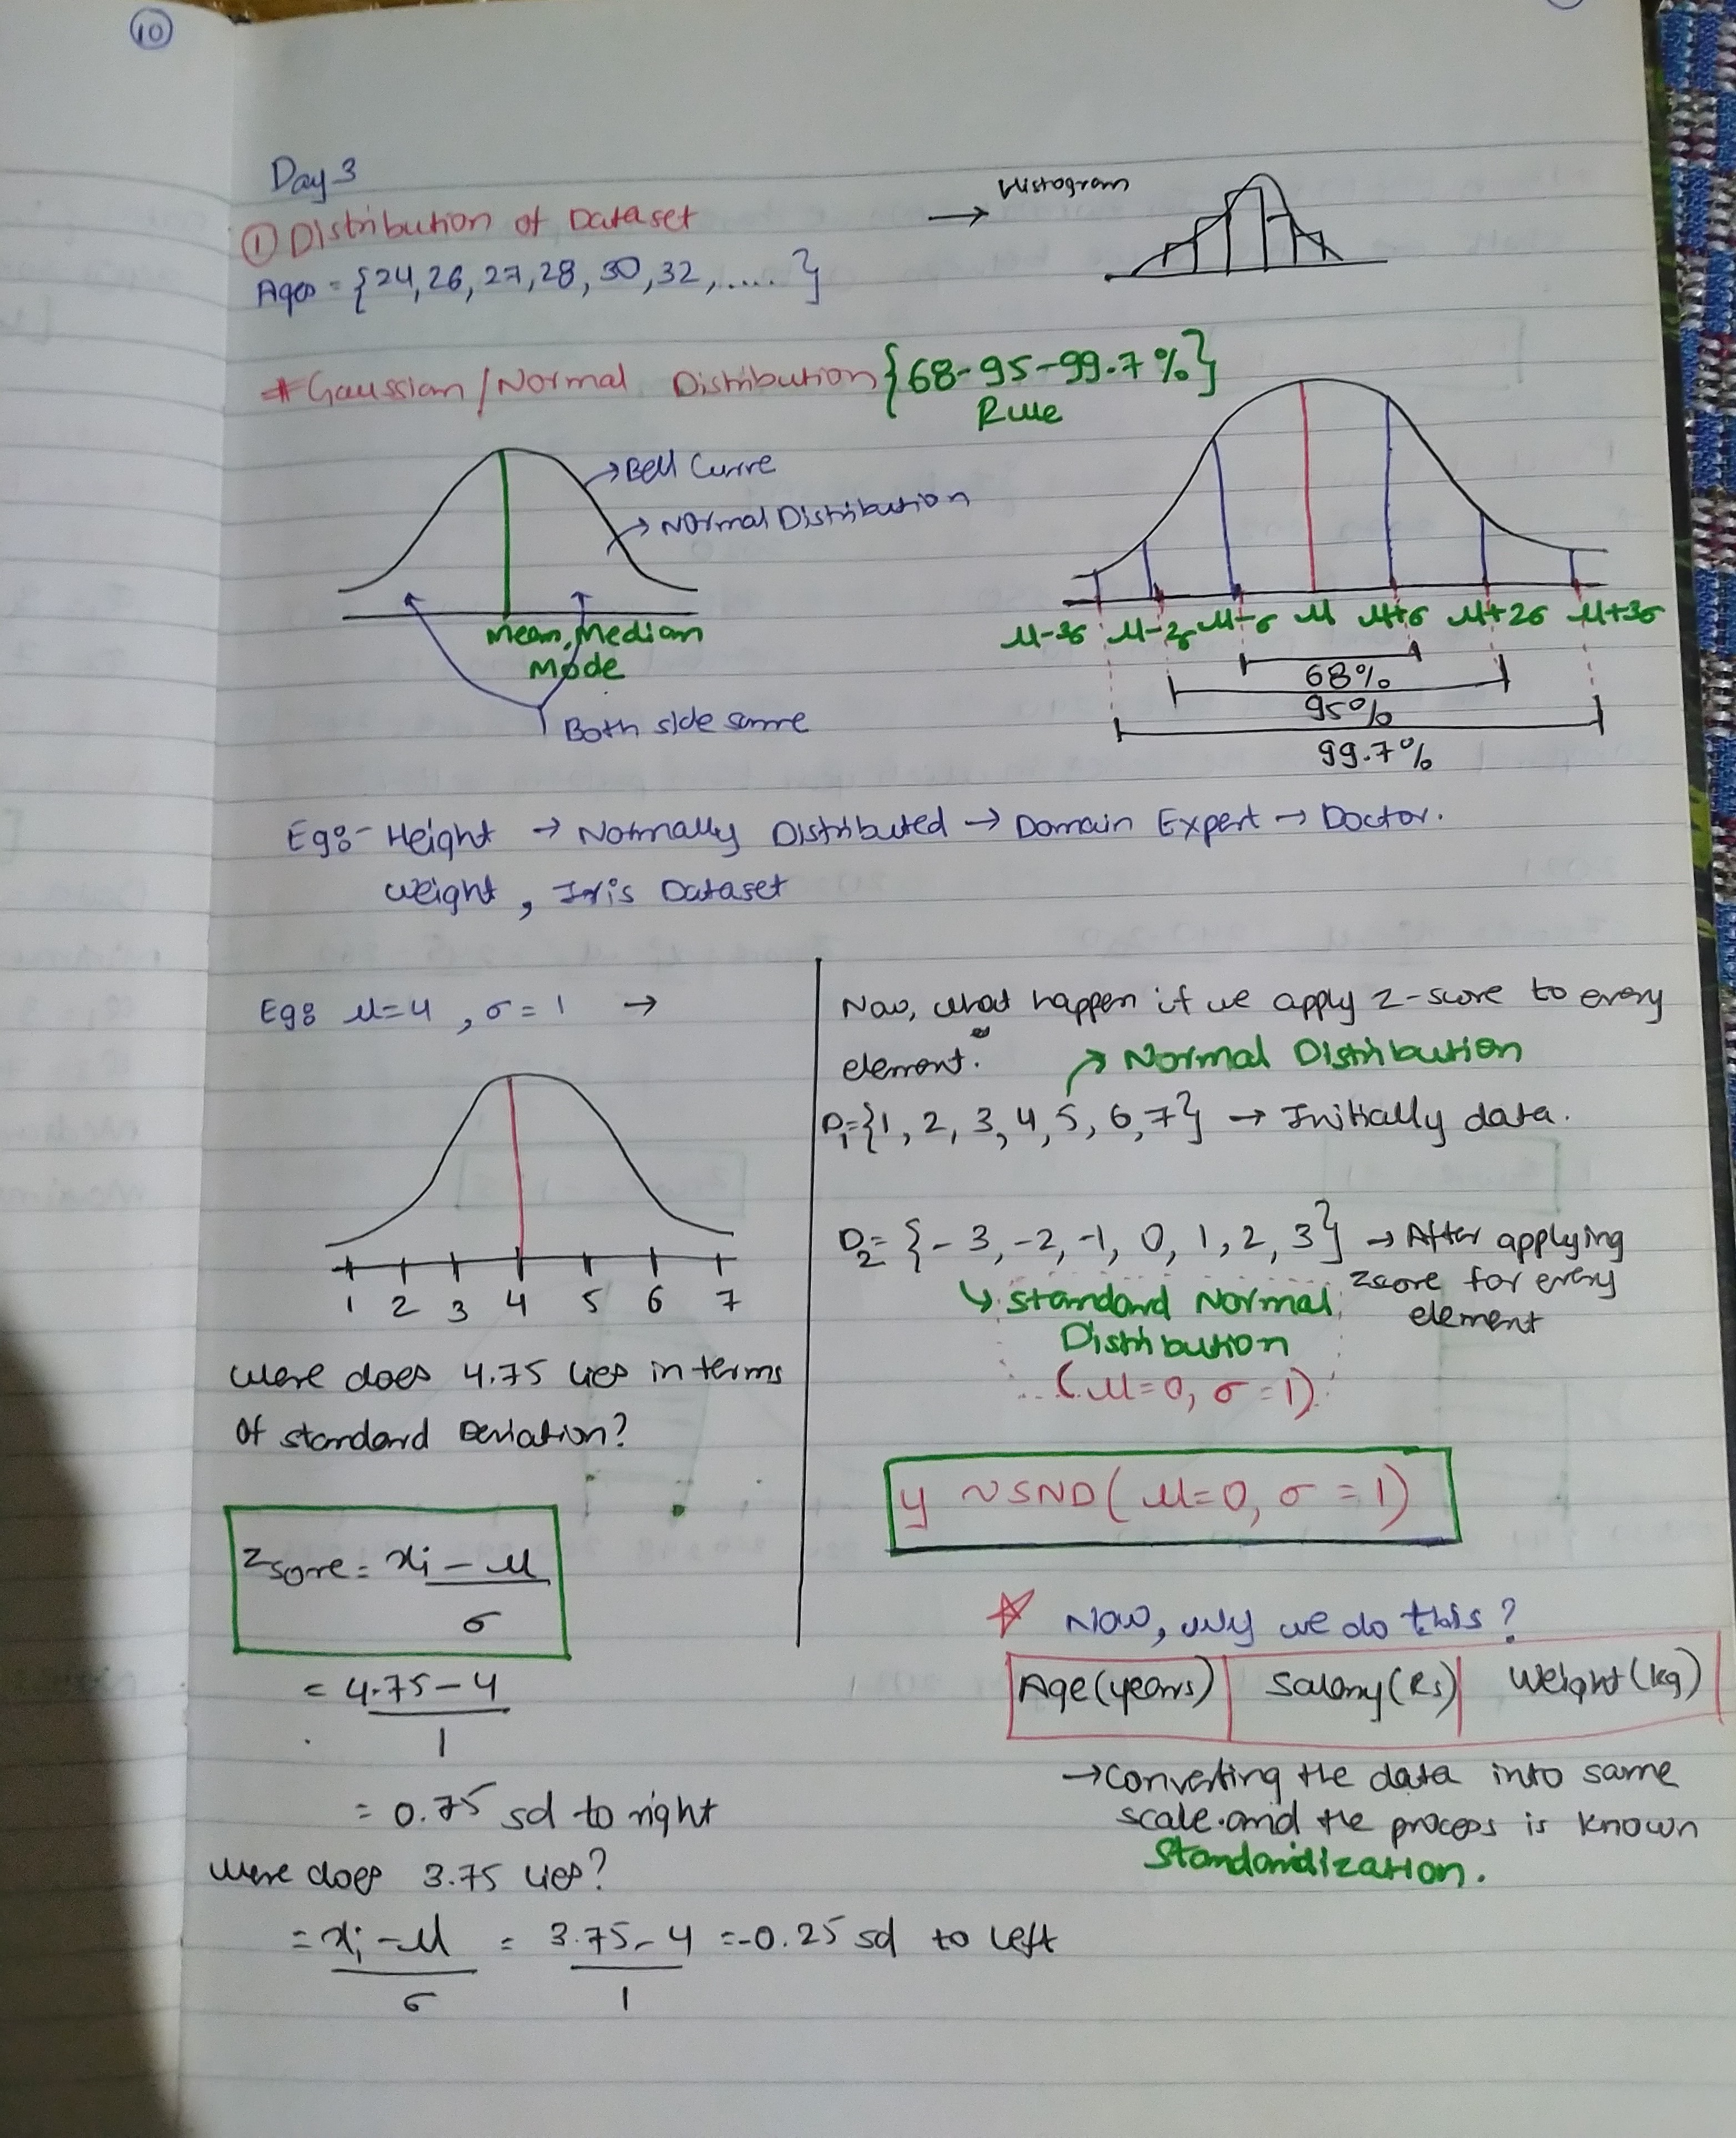 10
Day 3
① Distribution of Dataset
Ages = {24, 26, 27, 28, 30, 32, ..... }
→ Histogram
# Gaussian / Normal Distribution {68-95-99.7 %}
Rule
→ Bell Curve
→ Normal Distribution
Mean, Median
Mode
Both side same
μ-3σ μ-2σ μ-σ μ μ+σ μ+2σ μ+3σ
68%
95%
99.7%
Eg:- Height → Normally Distributed → Domain Expert → Doctor.
weight, Iris Dataset
Eg: μ=4, σ=1 →
1 2 3 4 5 6 7
Were does 4.75 lies in terms
of standard Deviation?
Zscore = xi - μ
σ
= 4.75-4
1
= 0.75 sd to right
Were does 3.75 lies?
= xi - μ = 3.75-4 = -0.25 sd to left
σ 1
Now, what happen if we apply z-score to every
element.
→ Normal Distribution
D1={1, 2, 3, 4, 5, 6, 7} → Initially data.
D2= {-3, -2, -1, 0, 1, 2, 3} → After applying
zscore for every
element
↳ Standard Normal
Distribution
(μ=0, σ=1)
y ~ SND (μ=0, σ=1)
☆ Now, why we do this?
Age (years) Salary (Rs) Weight (kg)
→ Converting the data into same
scale and the process is known
Standardization.